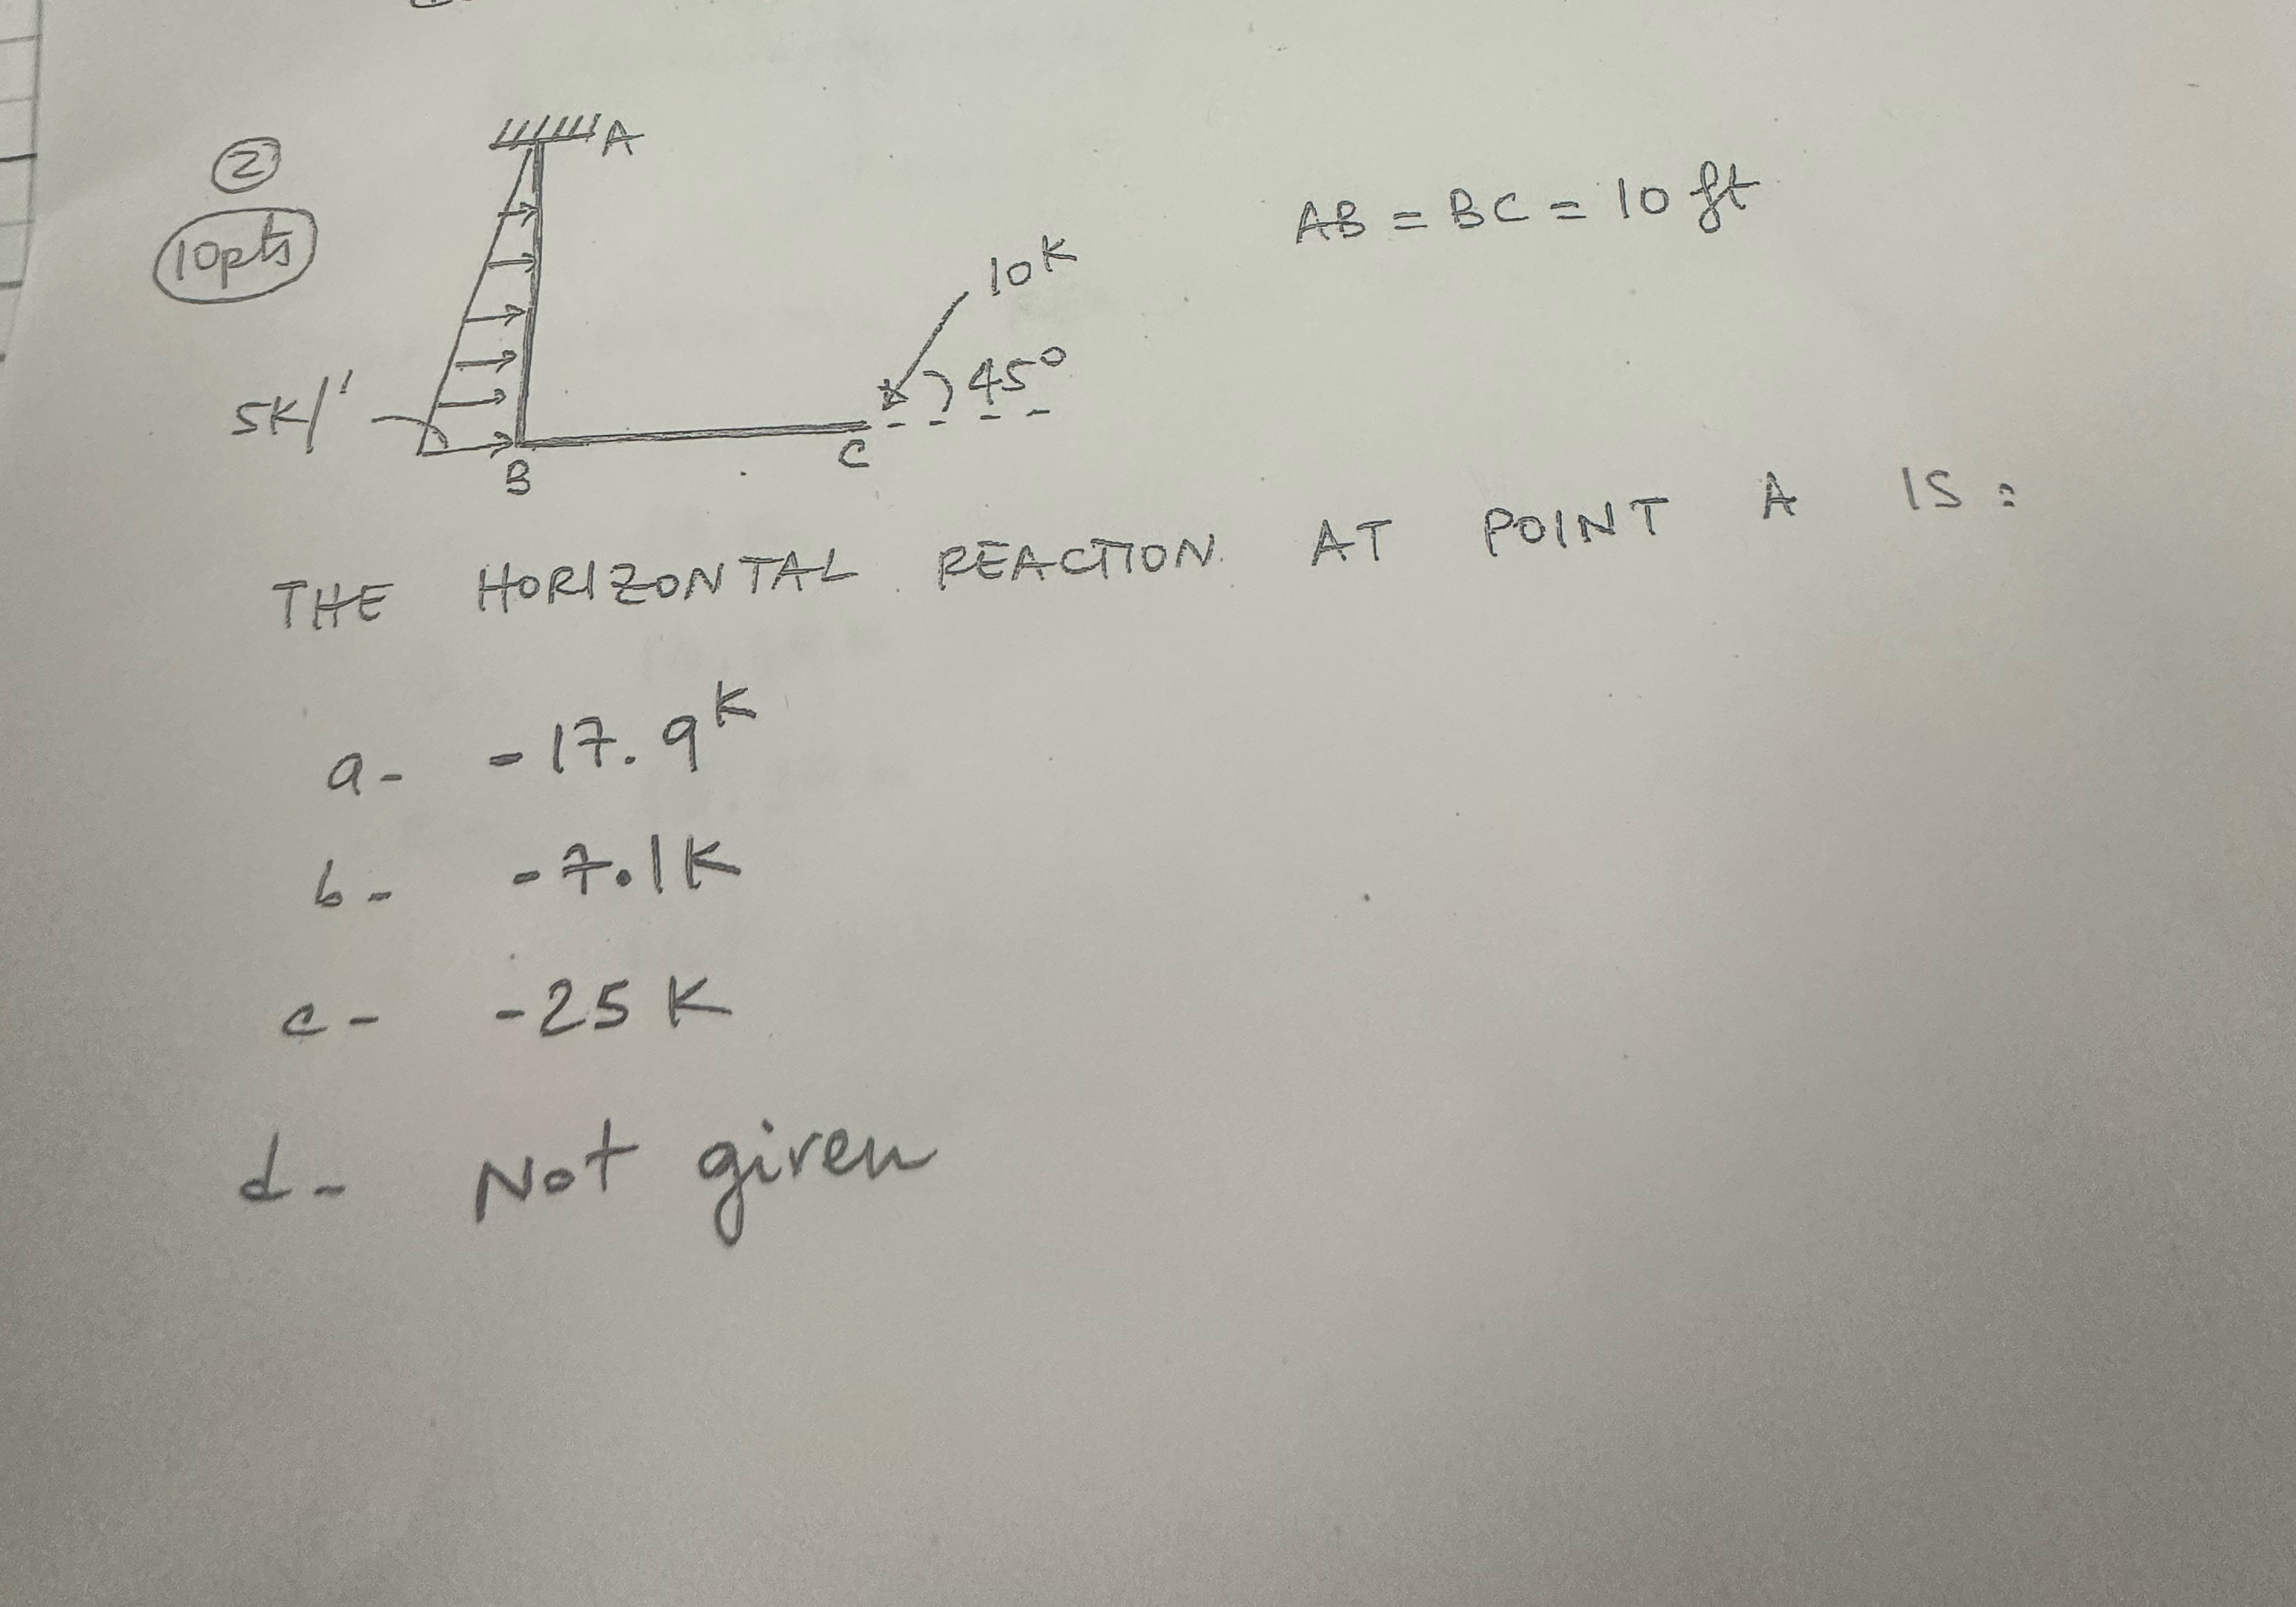 2
10pts
A
AB = BC = 10 ft
10K
45°
5K/'
B
C
THE HORIZONTAL REACTION AT POINT A IS:
a- -17.9K
b- -7.1K
c- -25K
d- Not given